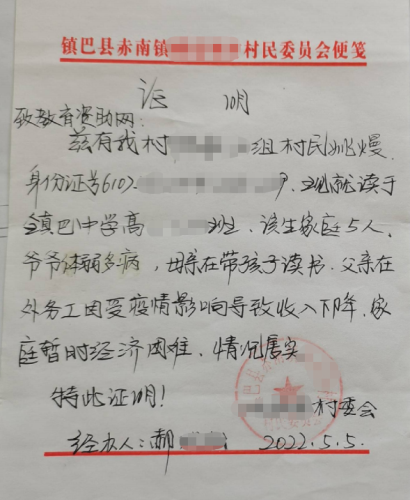 镇巴县赤南镇 村民委员会便笺
证 明
致教育资助网:
兹有我村 组村民姚熳
身份证号6102 9,现就读于
镇巴中学高 班,该生家庭5人,
爷爷体弱多病,母亲在带孩子读书,父亲在
外务工因受疫情影响导致收入下降,家
庭暂时经济困难,情况属实
特此证明!
村委会
经办人:郝 2022.5.5.